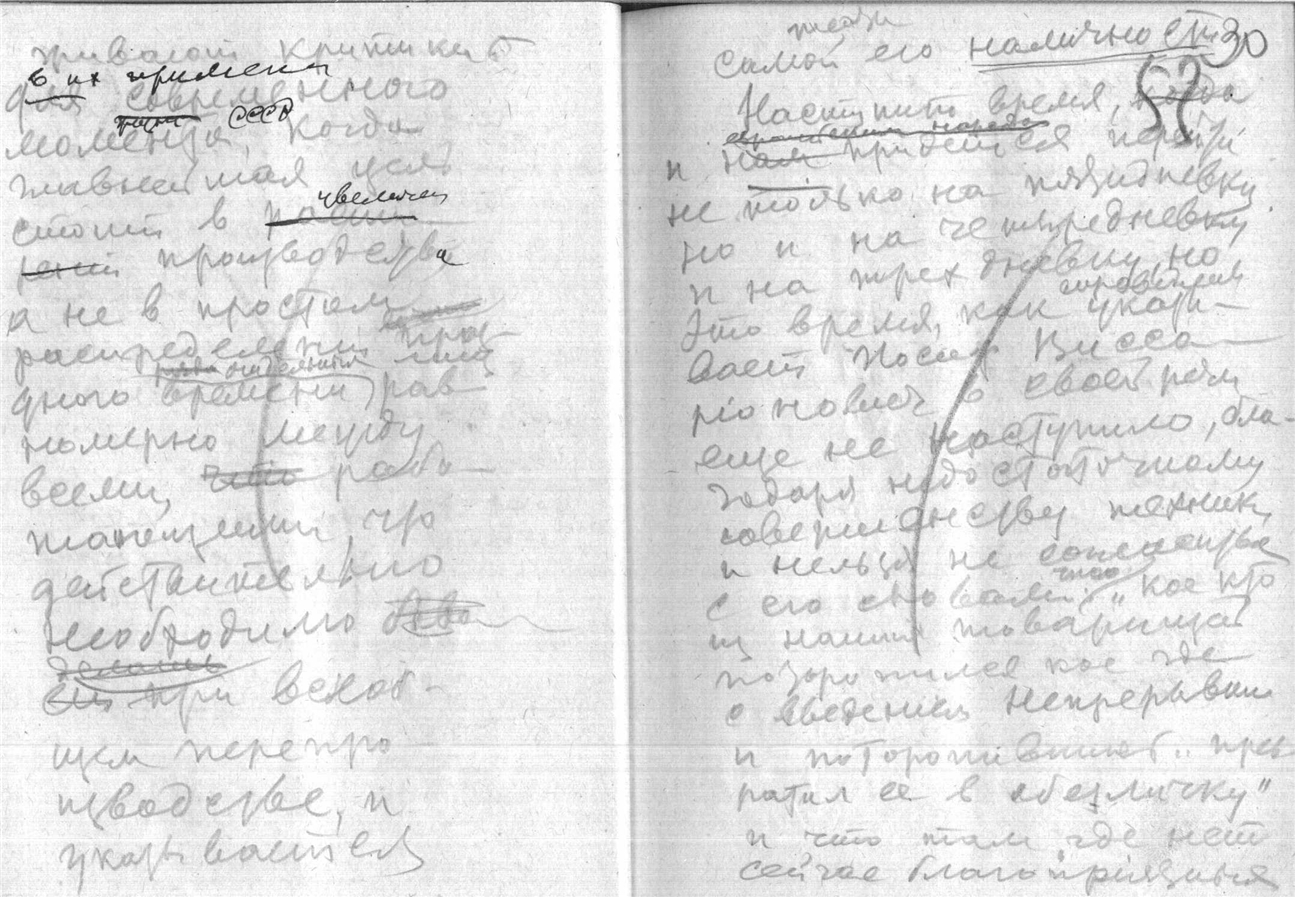 живают критики
в их примене
для современного
СССР
момента, когда
главнейшая цель
увеличен
стоит в
производства
а не в простом
распределении
дного времени рав
номерно между
всеми, что рабо-
тающими, что
действительно
необходимо
делать
при всеоб-
щем перепро
изводстве, и
указывается
самой его наличност 30
57
Наступит время, когда
и нам придется перейти
не только на пятидневку
но и на четыредневку
и на трех дневку, но
это время, как указы-
вает Иосиф Висса
рионович в своей речи
еще не наступило, бла-
годаря недостаточному
совершенству техники,
и нельзя не согласиться
с его словами „кое кто
из наших товарищей
поторопился кое где
с введением непрерывки
и поторопившись пре
ратил ее в обезличку"
и что там где нет
сейчас благоприятных